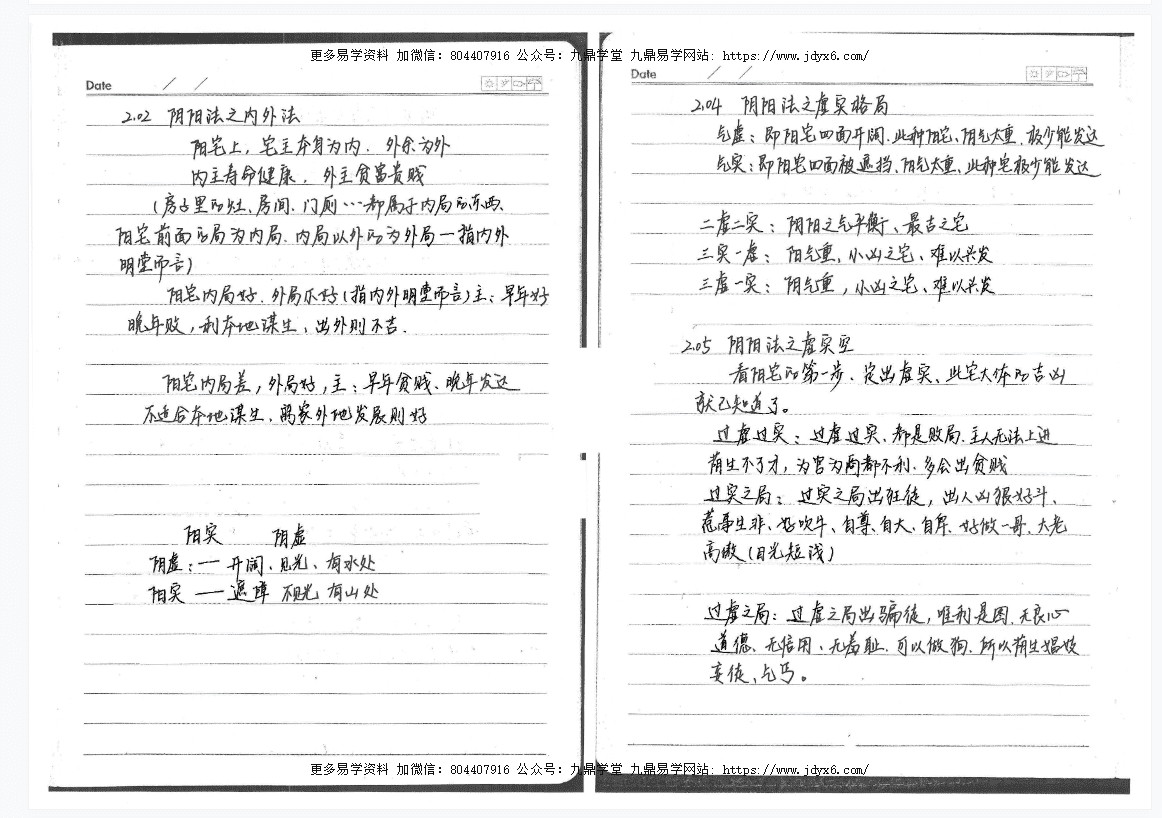 更多易学资料 加微信：804407916 公众号：九鼎学堂 九鼎易学网站: https://www.jdyx6.com/
Date
2.02 阴阳法之内外法
阳宅上，宅主本身为内．外余为外
内主寿命健康．外主贫富贵贱
（房子里的灶、房间、门厕…都属于内局的东西、
阳宅前面的局为内局．内局以外的为外局一指内外
明堂而言）
阳宅内局好．外局不好（指内外明堂而言）主：早年好
晚年败，利本地谋生、出外则不吉．
阳宅内局差，外局好，主：早年贫贱、晚年发达
不适合本地谋生、离家外地发展则好
阳实 阴虚
阴虚：一 开阔、见光、有水处
阳实 — 遮障 不见光 有山处
Date
2.04 阴阳法之虚实格局
气虚：即阳宅四面开阔．此种阳宅、阴气太重．极少能发达
气实：即阳宅四面被遮挡、阳气太重、此种宅极少能发达
二虚二实：阴阳之气平衡、最吉之宅
三实一虚：阳气重，小凶之宅、难以兴发
三虚一实：阴气重，小凶之宅、难以兴发
2.05 阴阳法之虚实空
看阳宅的第一步、定出虚实、此宅大体的吉凶
就已知道了。
过虚过实：过虚过实、都是败局．主人无法上进
荫生不了才，为官为商都不利．多会出贫贱
过实之局：过实之局出狂徒，出人凶狠好斗、
惹事生非、好吹牛、自尊、自大、自傲．好做一哥、大老
高傲（目光短浅）
过虚之局：过虚之局出骗徒，唯利是图．无良心
道德、无信用、无羞耻．可以做狗．所以荫生娼妓
妄徒、乞丐。
更多易学资料 加微信：804407916 公众号：九鼎学堂 九鼎易学网站: https://www.jdyx6.com/